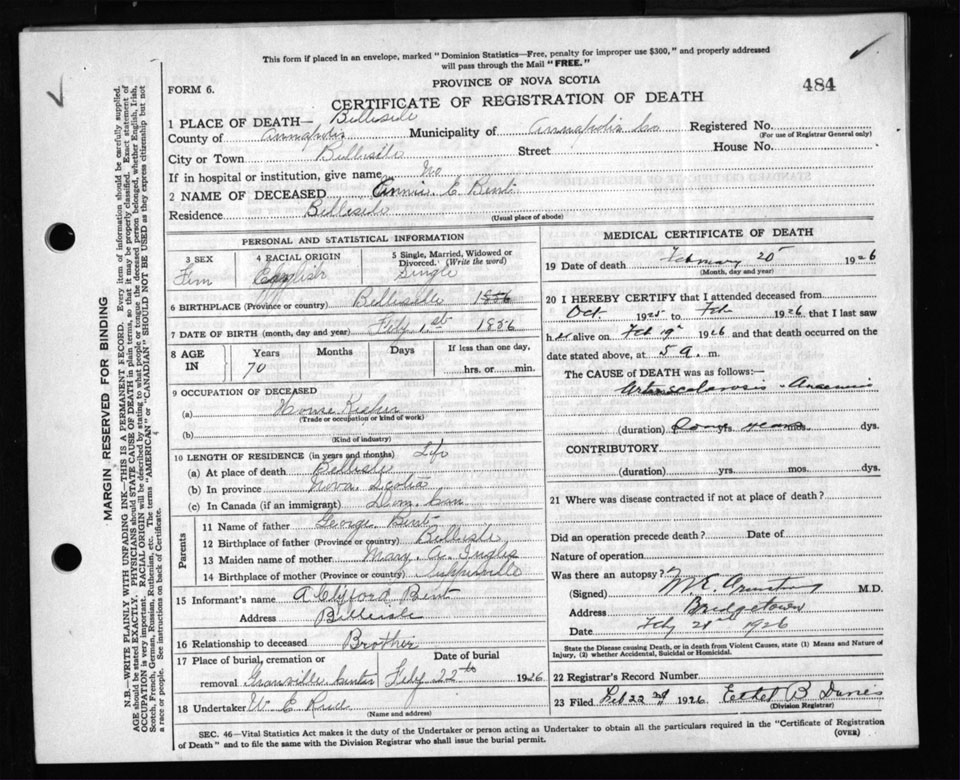 This form if placed in an envelope, marked "Dominion Statistics—Free, penalty for improper use $300," and properly addressed
will pass through the Mail "FREE."
PROVINCE OF NOVA SCOTIA
FORM 6.
484
CERTIFICATE OF REGISTRATION OF DEATH
1 PLACE OF DEATH— Bellisle
County of Annapolis Municipality of Annapolis Co Registered No.
(For use of Registrar General only)
City or Town Bellisle Street House No.
If in hospital or institution, give name No
2 NAME OF DECEASED Annie E. Bent
Residence Bellisle
(Usual place of abode)
PERSONAL AND STATISTICAL INFORMATION
3 SEX
Fem
4 RACIAL ORIGIN
English
5 Single, Married, Widowed or
Divorced. (Write the word)
Single
6 BIRTHPLACE (Province or country) Bellisle 1856
7 DATE OF BIRTH (month, day and year) Feby 1st 1856
8 AGE IN
Years Months Days If less than one day,
70 hrs. or min.
9 OCCUPATION OF DECEASED
(a) House Keeper
(Trade or occupation or kind of work)
(b)
(Kind of industry)
10 LENGTH OF RESIDENCE (in years and months) Life
(a) At place of death Bellisle
(b) In province Nova Scotia
(c) In Canada (if an immigrant) Dom. Can
Parents
11 Name of father George Bent
12 Birthplace of father (Province or country) Bellisle
13 Maiden name of mother Mary A. Inglis
14 Birthplace of mother (Province or country) Tupperville
15 Informant's name A Clyford Bent
Address Bellisle
16 Relationship to deceased Brother
17 Place of burial, cremation or Date of burial
removal Granville Center Feby 22nd 1926
18 Undertaker W E
(Name and address)
MEDICAL CERTIFICATE OF DEATH
19 Date of death February 20 1926
(Month, day and year)
20 I HEREBY CERTIFY that I attended deceased from
Oct. 1925 to Feb 1926 that I last saw
her alive on Feb 19th 1926 and that death occurred on
the date stated above, at 5 a. m.
The CAUSE OF DEATH was as follows:—
Arteriosclerosis - Anaemia
(duration) some years mos. dys.
CONTRIBUTORY
(duration) yrs. mos. dys.
21 Where was disease contracted if not at place of death?
Did an operation precede death? Date of
Nature of operation
Was there an autopsy?
(Signed) M.E. Armstrong M.D.
Address Bridgetown
Date Feby 1926
State the Disease causing Death, or in death from Violent Causes, state (1) Means and Nature of
Injury, (2) whether Accidental, Suicidal or Homicidal.
22 Registrar's Record Number
23 Filed Feb 22nd 1926 Ethel B
(Division Registrar)
SEC. 46—Vital Statistics Act makes it the duty of the Undertaker or person acting as Undertaker to obtain all the particulars required in the "Certificate of Registration
of Death" and to file the same with the Division Registrar who shall issue the burial permit.
(OVER)
MARGIN RESERVED FOR BINDING
N.B.—WRITE PLAINLY WITH UNFADING INK—THIS IS A PERMANENT RECORD. Every item of information should be carefully supplied.
AGE should be stated EXACTLY. PHYSICIANS should STATE CAUSE OF DEATH in plain terms, so that it may be properly classified. Exact statement of
OCCUPATION is very important. RACIAL ORIGIN will be described by stating to what people or tongue the deceased person belonged, whether English, Irish,
Scotch, French, German, Russian, Ruthenian, etc. The terms "AMERICAN" or "CANADIAN" SHOULD NOT BE USED as they express citizenship but not
a race or people. See instructions on back of Certificate.